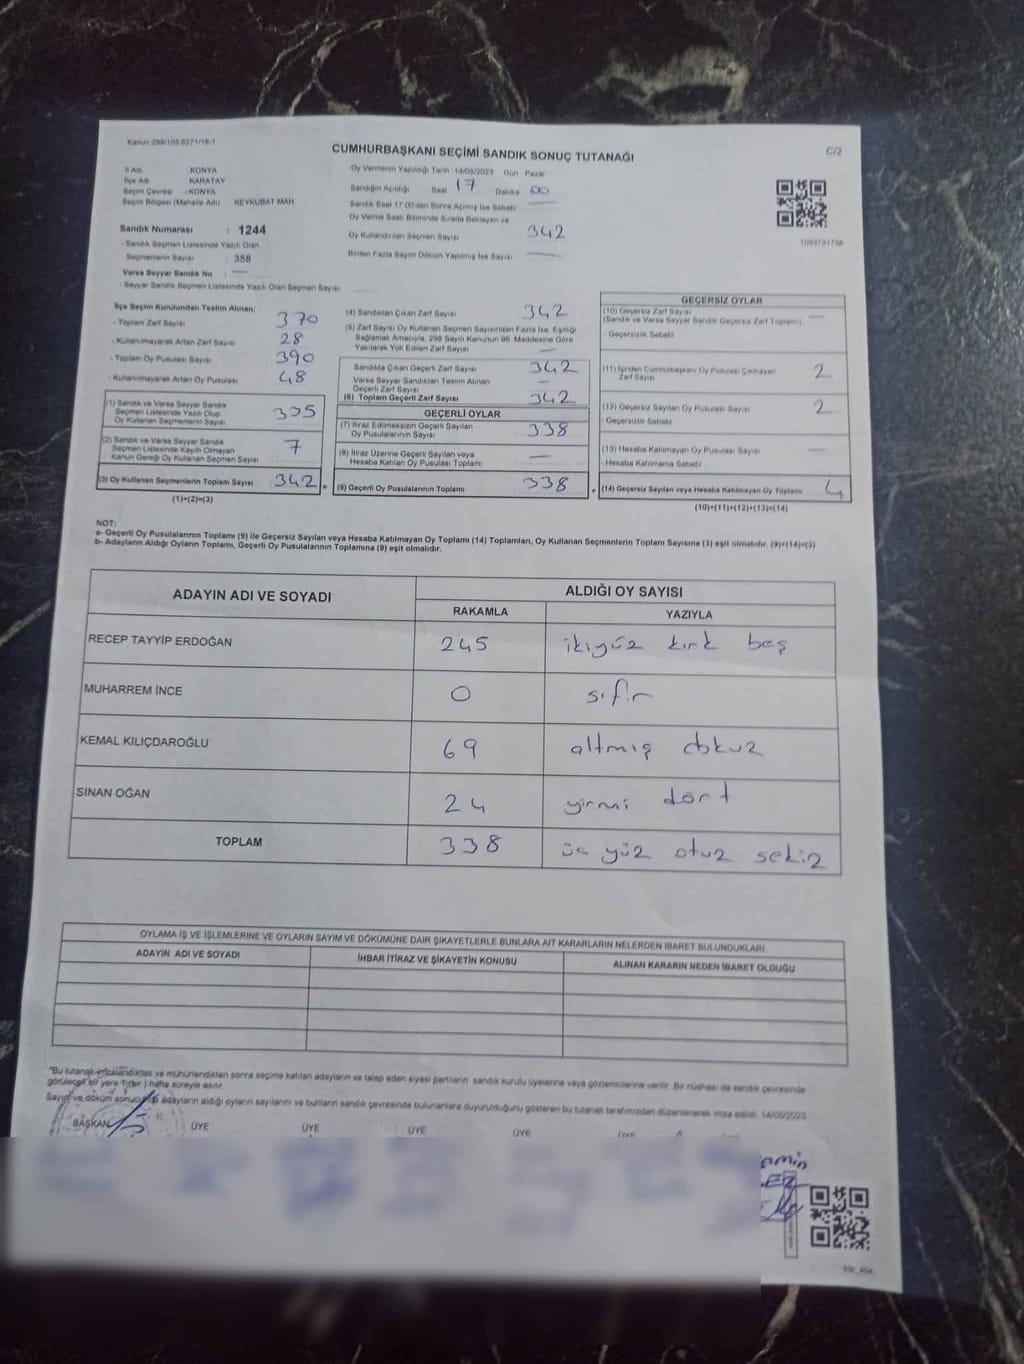 Kanun 298/105 6271/18-1
CUMHURBAŞKANI SEÇİMİ SANDIK SONUÇ TUTANAĞI
C/2
İl Adı : KONYA
İlçe Adı : KARATAY
Seçim Çevresi : KONYA
Seçim Bölgesi (Mahalle Adı) KEYKUBAT MAH
Sandık Numarası : 1244
- Sandık Seçmen Listesinde Yazılı Olan
Seçmenlerin Sayısı : 358
Varsa Seyyar Sandık No : —
- Seyyar Sandık Seçmen Listesinde Yazılı Olan Seçmen Sayısı
Oy Vermenin Yapıldığı Tarih 14/05/2023 Gün Pazar
Sandığın Açıldığı Saat 17 Dakika 00
Sandık Saat 17:00'den Sonra Açılmış İse Sebebi —
Oy Verme Saati Bitiminde Sırada Bekleyen ve
Oy Kullandırılan Seçmen Sayısı 342
Birden Fazla Sayım Döküm Yapılmış İse Sayısı —
1093791738
İlçe Seçim Kurulundan Teslim Alınan;
- Toplam Zarf Sayısı 370
- Kullanılmayarak Artan Zarf Sayısı 28
- Toplam Oy Pusulası Sayısı 390
- Kullanılmayarak Artan Oy Pusulası 48
(1) Sandık ve Varsa Seyyar Sandık
Seçmen Listesinde Yazılı Olup
Oy Kullanan Seçmenlerin Sayısı 335
(2) Sandık ve Varsa Seyyar Sandık
Seçmen Listesinde Kayıtlı Olmayan
Kanun Gereği Oy Kullanan Seçmen Sayısı 7
(3) Oy Kullanan Seçmenlerin Toplam Sayısı 342 =
(1)+(2)=(3)
(4) Sandıktan Çıkan Zarf Sayısı 342
(5) Zarf Sayısı Oy Kullanan Seçmen Sayısından Fazla İse, Eşitliği
Sağlamak Amacıyla, 298 Sayılı Kanunun 98. Maddesine Göre
Yakılarak Yok Edilen Zarf Sayısı —
Sandıkta Çıkan Geçerli Zarf Sayısı 342
Varsa Seyyar Sandıktan Teslim Alınan
Geçerli Zarf Sayısı —
(6) Toplam Geçerli Zarf Sayısı 342
GEÇERLİ OYLAR
(7) İtiraz Edilmeksizin Geçerli Sayılan
Oy Pusulalarının Sayısı 338
(8) İtiraz Üzerine Geçerli Sayılan veya
Hesaba Katılan Oy Pusulası Toplamı —
(9) Geçerli Oy Pusulalarının Toplamı 338 +
GEÇERSİZ OYLAR
(10) Geçersiz Zarf Sayısı —
(Sandık ve Varsa Seyyar Sandık Geçersiz Zarf Toplamı)
- Geçersizlik Sebebi
(11) İçinden Cumhurbaşkanı Oy Pusulası Çıkmayan
Zarf Sayısı 2
(12) Geçersiz Sayılan Oy Pusulası Sayısı 2
- Geçersizlik Sebebi
(13) Hesaba Katılmayan Oy Pusulası Sayısı —
- Hesaba Katılmama Sebebi
(14) Geçersiz Sayılan veya Hesaba Katılmayan Oy Toplamı 4
(10)+(11)+(12)+(13)=(14)
NOT:
a- Geçerli Oy Pusulalarının Toplamı (9) ile Geçersiz Sayılan veya Hesaba Katılmayan Oy Toplamı (14) Toplamları, Oy Kullanan Seçmenlerin Toplam Sayısına (3) eşit olmalıdır. (9)+(14)=(3)
b- Adayların Aldığı Oyların Toplamı, Geçerli Oy Pusulalarının Toplamına (9) eşit olmalıdır.
ADAYIN ADI VE SOYADI
ALDIĞI OY SAYISI
RAKAMLA YAZIYLA
RECEP TAYYİP ERDOĞAN 245 ikiyüz kırk beş
MUHARREM İNCE 0 sıfır
KEMAL KILIÇDAROĞLU 69 altmış dokuz
SİNAN OĞAN 24 yirmi dört
TOPLAM 338 üç yüz otuz sekiz
OYLAMA İŞ VE İŞLEMLERİNE VE OYLARIN SAYIM VE DÖKÜMÜNE DAİR ŞİKAYETLERLE BUNLARA AİT KARARLARIN NELERDEN İBARET BULUNDUKLARI
ADAYIN ADI VE SOYADI İHBAR İTİRAZ VE ŞİKAYETİN KONUSU ALINAN KARARIN NEDEN İBARET OLDUĞU
"Bu tutanak imzalandıktan ve mühürlendikten sonra seçime katılan adayların ve talep eden siyasi partilerin sandık kurulu üyelerine veya gözlemcilerine verilir. Bir nüshası da sandık çevresinde
görülecek bir yere 1 (bir) hafta süreyle asılır.
Sayım ve döküm sonucu adayların aldığı oyların sayılarını ve bunların sandık çevresinde bulunanlara duyurulduğunu gösteren bu tutanak tarafımızdan düzenlenerek imza edildi. 14/05/2023
BAŞKAN ÜYE ÜYE ÜYE ÜYE